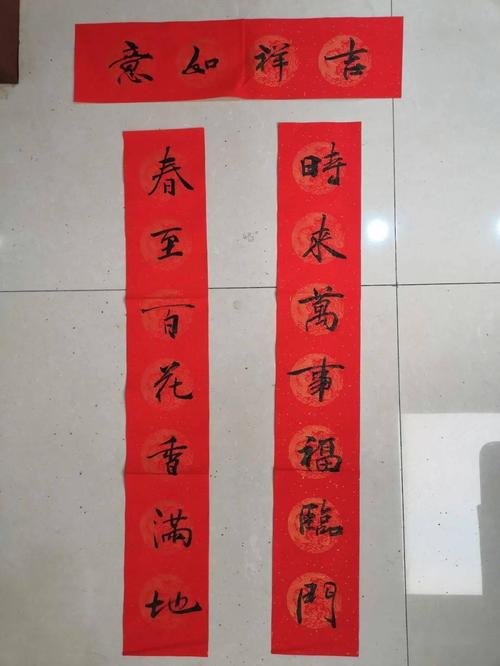 吉祥如意
時來萬事福臨門
春至百花香滿地